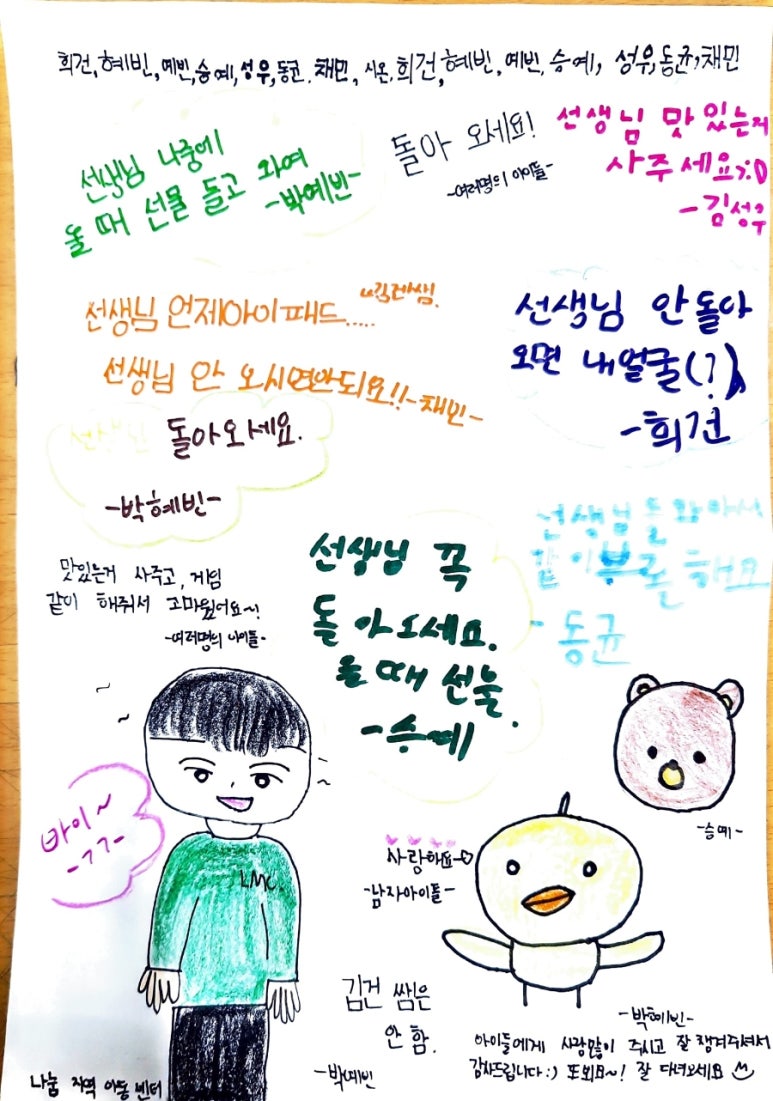 희건, 혜빈, 예빈, 승예, 성우, 동균, 채민, 시온, 희건, 혜빈, 예빈, 승예, 성우, 동균, 채민
선생님 나중에
올 때 선물 들고 와여
-박예빈-
돌아 오세요!
-여러명의 아이들-
선생님 맛있는거
사주세요 :D
-김성우
선생님 언제아이패드.....
선생님 안 오시면안되요!! -채민-
선생님 안돌아
오면 내얼굴(?)
-희건
선생님 돌아오세요.
-박혜빈-
맛있는거 사주고, 게임
같이 해줘서 고마웠어요~!
-여러명의 아이들-
선생님 꼭
돌아오세요.
올 때 선물.
-승예
선생님 돌아와서
같이 해요
-동균
바이~
-ㄱㄱ-
LMC.
-승예-
사랑해요♡
-남자아이들-
김건 쌤은
안 함.
-박예빈
-박혜빈-
아이들에게 사랑많이 주시고 잘 챙겨주셔서
감사드립니다 :) 또뵈요~! 잘 다녀오세요
나눔 지역 아동 센터